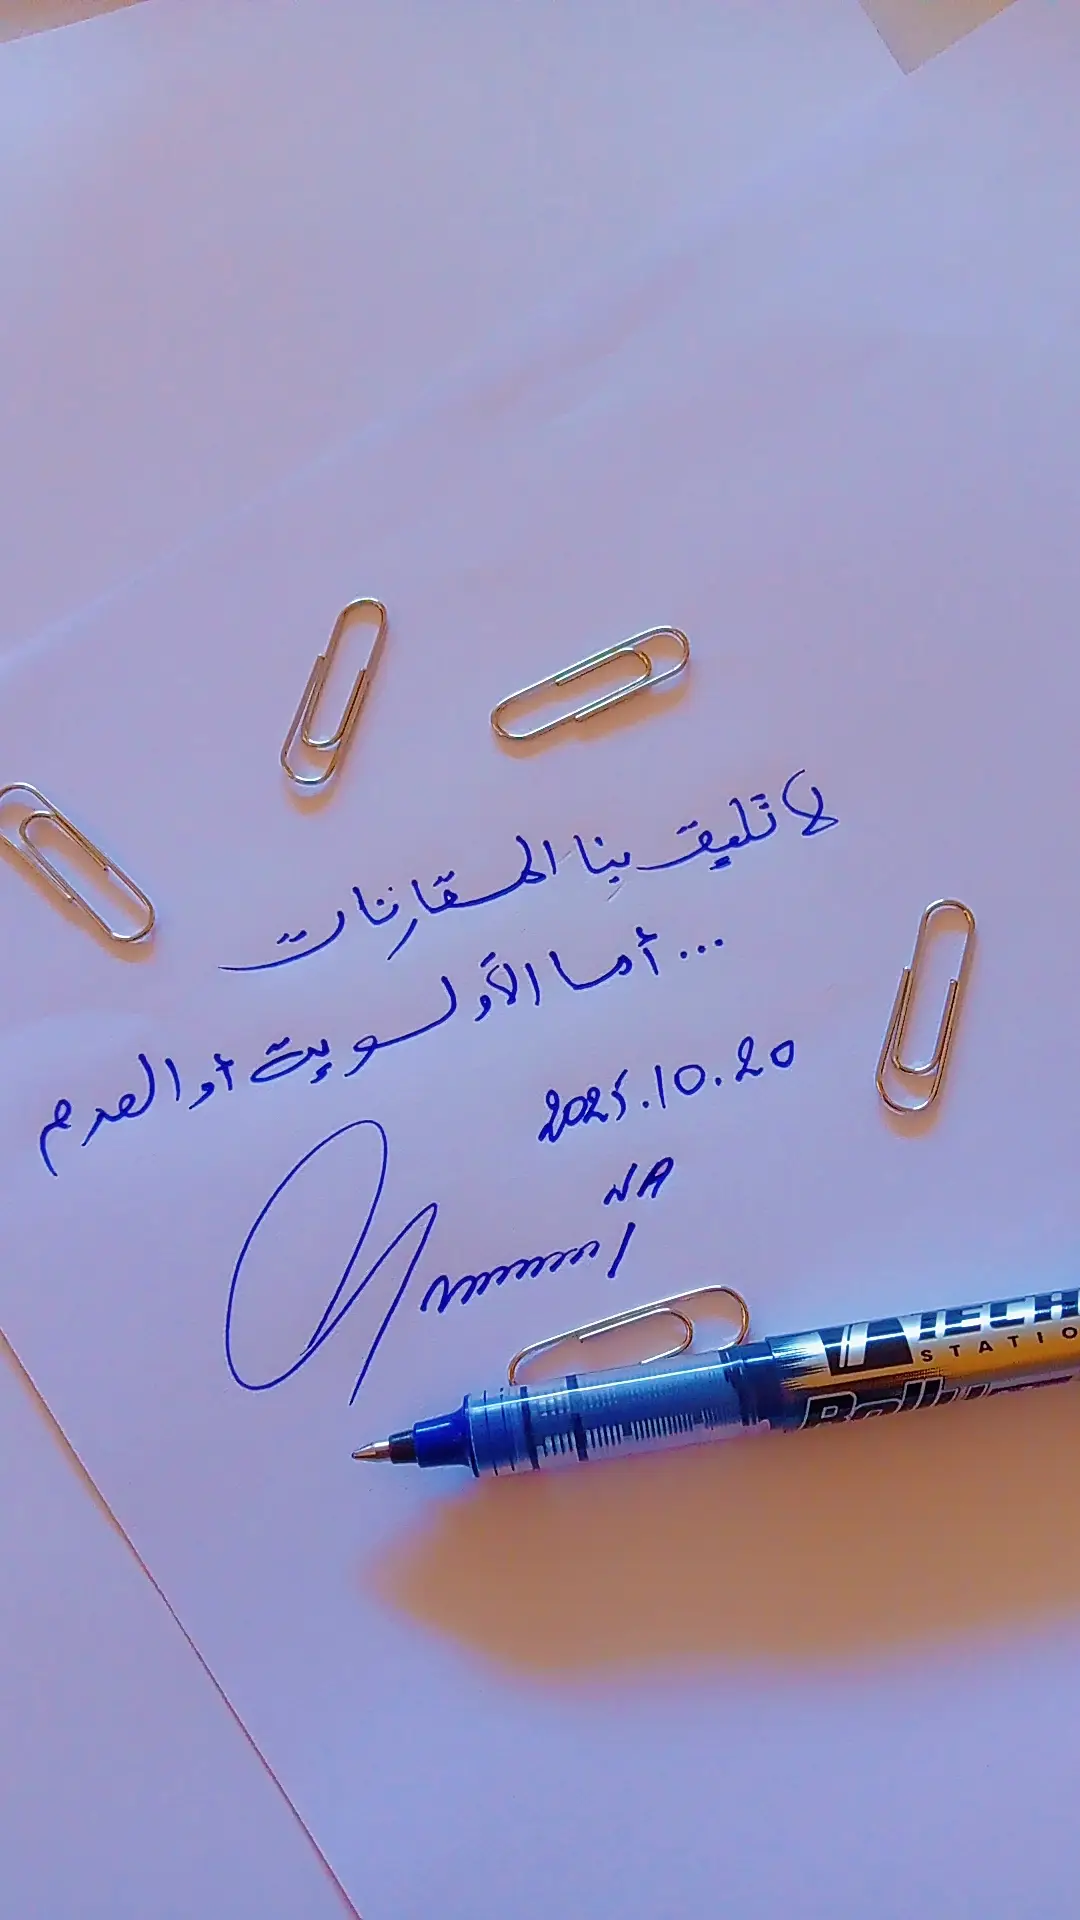 لا تليق بنا المقارنات
... أما الأولوية أو العدم
2025.10.20
NA
TECH
STATIO
Rolly